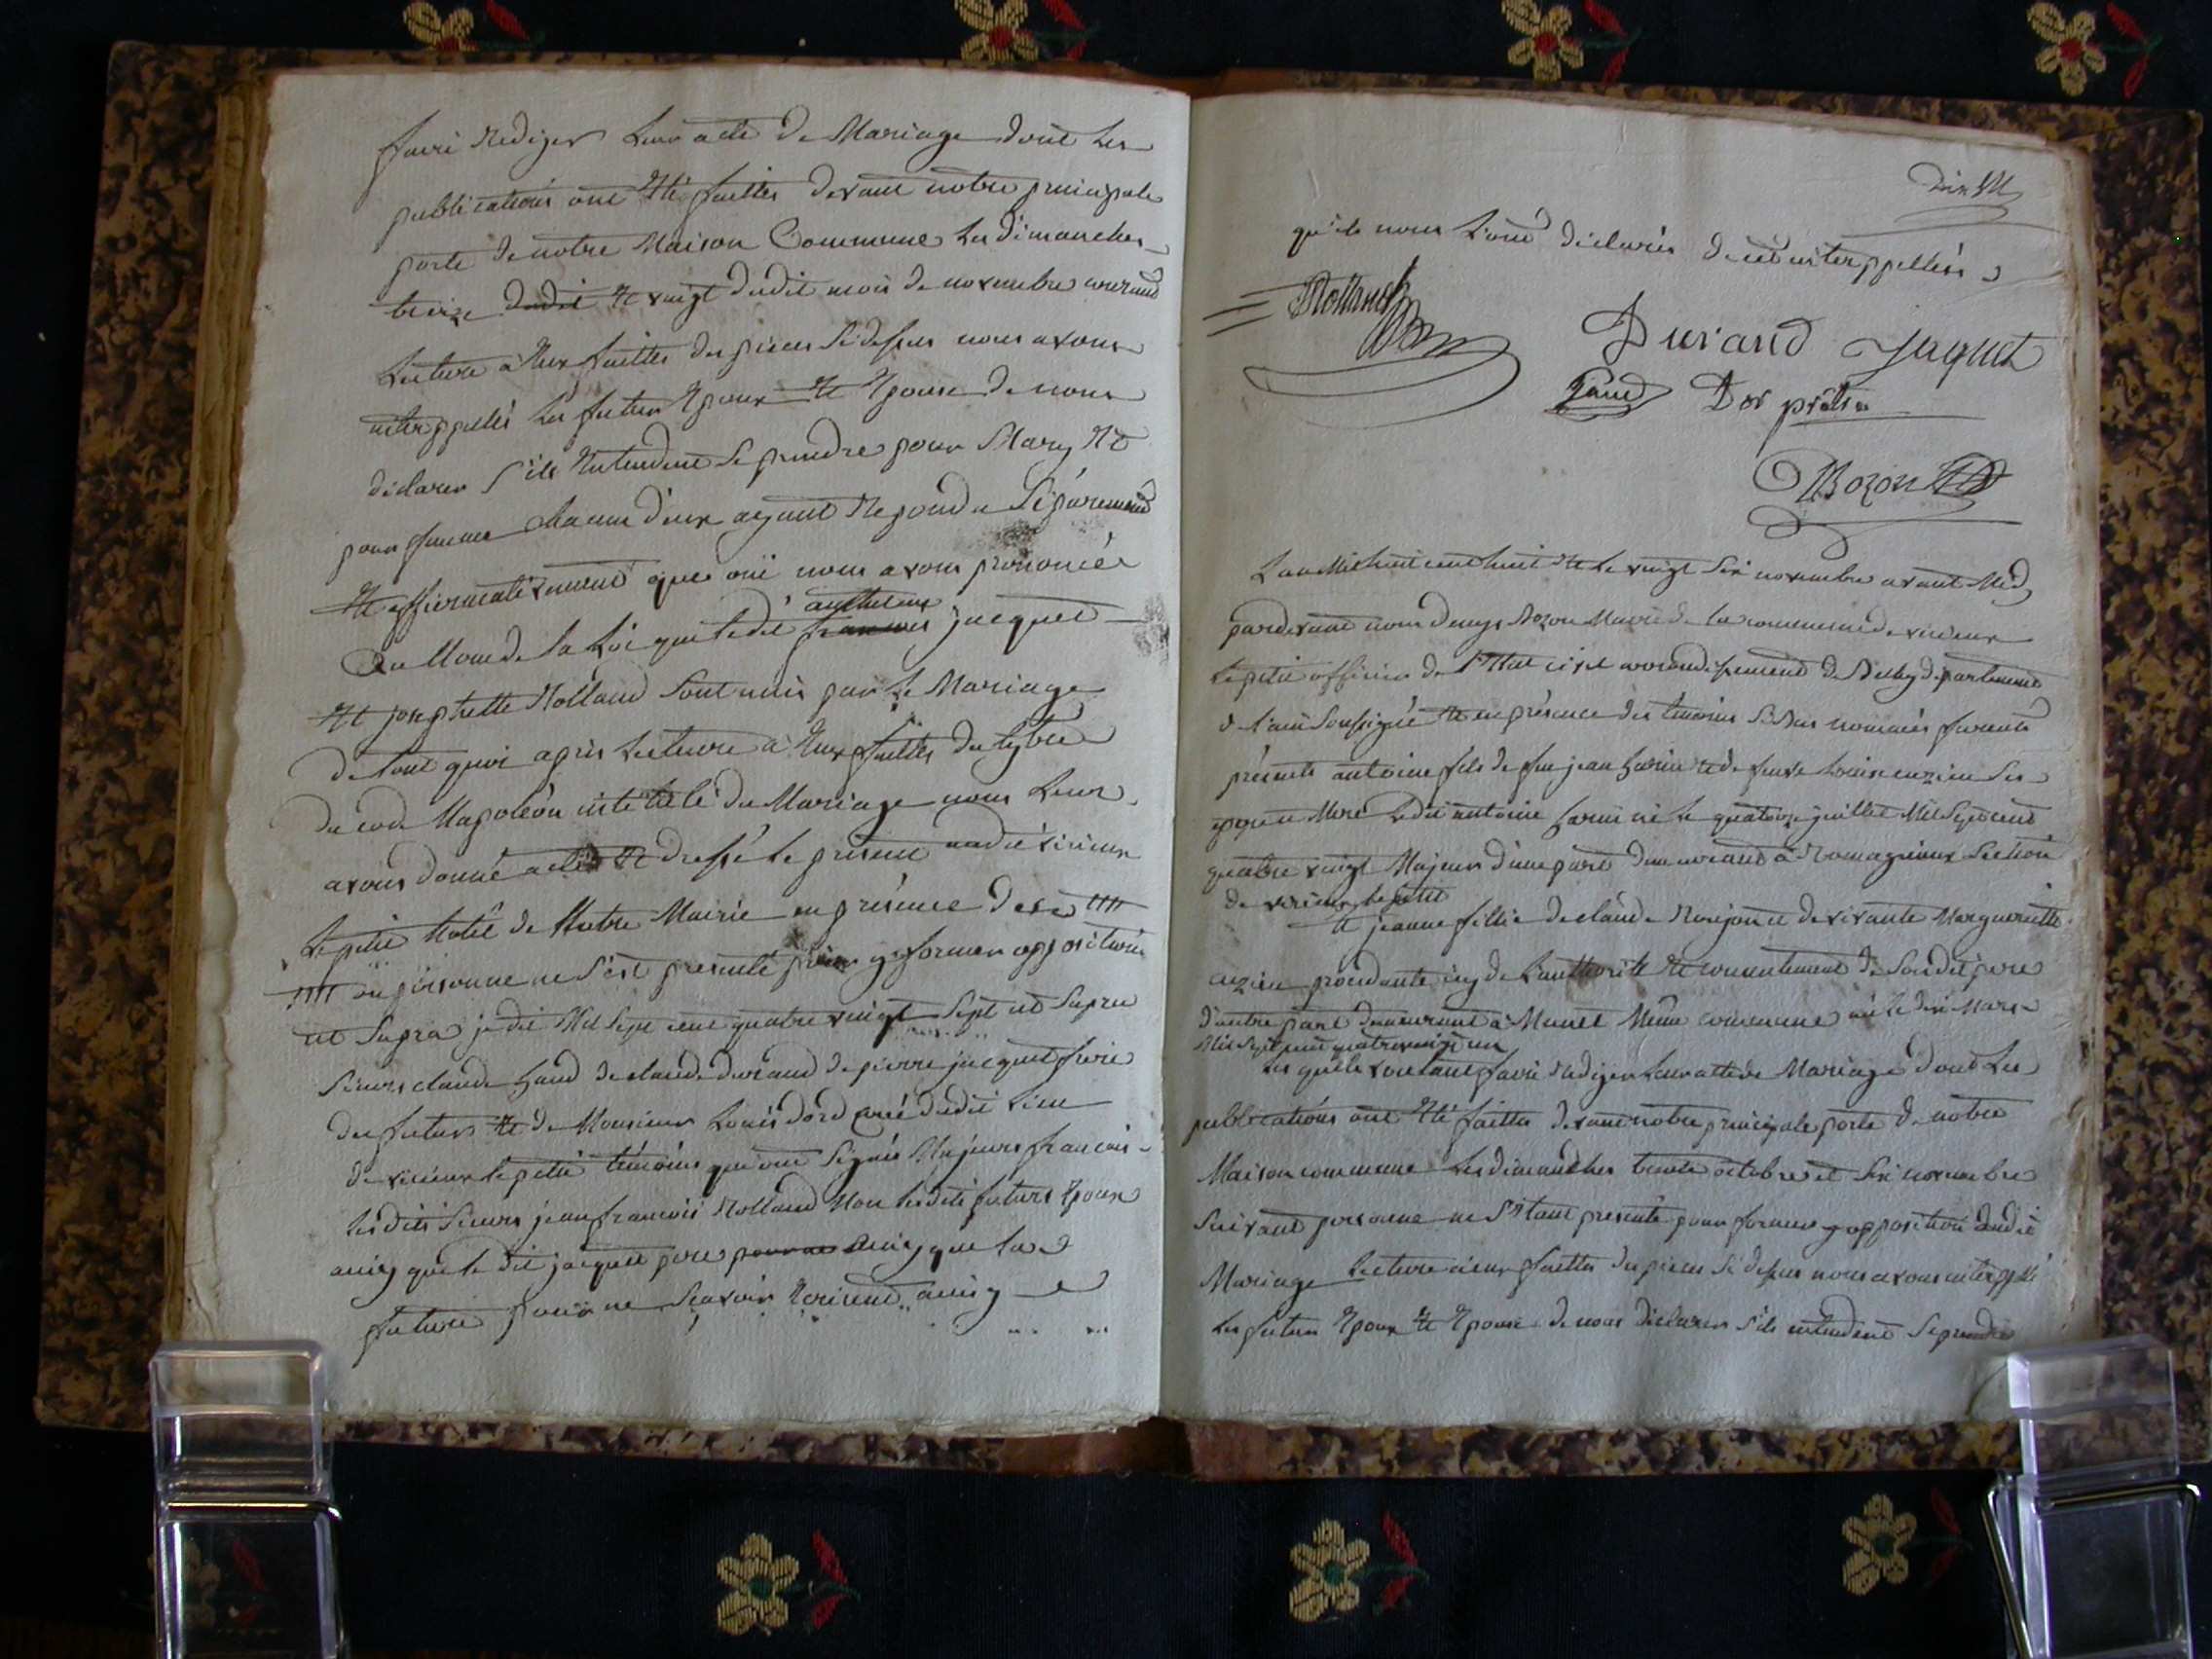 faire Rediger Leur acte de Mariage dont Les
publications ont Eté faittes devant notre principale
porte de notre Maison Commune Les dimanches
treize dudit Et vingt dudit mois de novembre courant
Lecture a Eux faittes des pieces Si dessus nous avons
interppellés Les futur Epoux Et Epouse de nous
declarer S'ils Entendent Se prendre pour Mary Et
pour femme chacun d'eux ayant Repondu Séparement
Et affirmativement que oui nous avons prononcés
anthelme
Au Nom de la Loi que ledit francois jacquet
Et josephette Rolland Sont unis par Le Mariage
de tout quoi apris Lecture a Eux faittes du tytre
du code Napoléon intitulé du Mariage nous Leur
avons donné acte Et dressé Le présent audit virieux
Le petit hotel de Notre Mairie en présence des
ou personne ne S'est presenté pour y former opposition
ut Supra je dit Mil Sept cent quatre vingt Sept ut Supra
Sieurs claude de claude durand de pierre jacquet frere
du futur Et de Monsieur Louis dord curé dudit Lieu
de virieux Le petit témoins qui ont Signés Majeurs francais
Lesdits Sieurs jean francois Rolland Non Lesdits futurs Epoux
ainsy que le dit jacquet pere pour ne ainsy que la
future pour ne Scavoir Ecrirent ainsy
Dix
qu'ils nous L'ont déclarés de ce interppellés
Rolland
Durand Jaquet
Dor prêtre
Bozon
L'an Mil huit cent huit Et Le vingt Six novembre avant Midy
pardevant nous denys Bozon Maire de la commune de virieux
Le petit officier de l'Etat civil arrondissement de Belley département
de l'ain Soussigné Et en présence des temoins Si bas nommés furent
présents antoine fils de feu jean et de feue Louise cuzin Ses
pere et Mere Ledit antoine né Le quatorze juillet Mil Sept cent
quatre vingt Majeur d'une part demeurant a Romagnieux Section
de virieux Le petit
Et jeanne fillie de claude Et de vivante Marguerite
cuzin procedante icy de L'authorité Et consentement de Son dit pere
d'autre part demeurant a Munet Même commune née le dix Mars
Mil Sept cent quatre vingt un
Les quels voulant faire Rediger Leur acte de Mariage dont Les
publications ont Eté faittes devant notre principale porte de notre
Maison commune Les dimanches trente octobre et Six novembre
Suivant personne ne S'Etant presenté pour former opposition audit
Mariage Lecture a eux faittes des pieces Si dessus nous avons interppellé
Les futur Epoux Et Epouse de nous déclarer S'ils entendent Se prendre